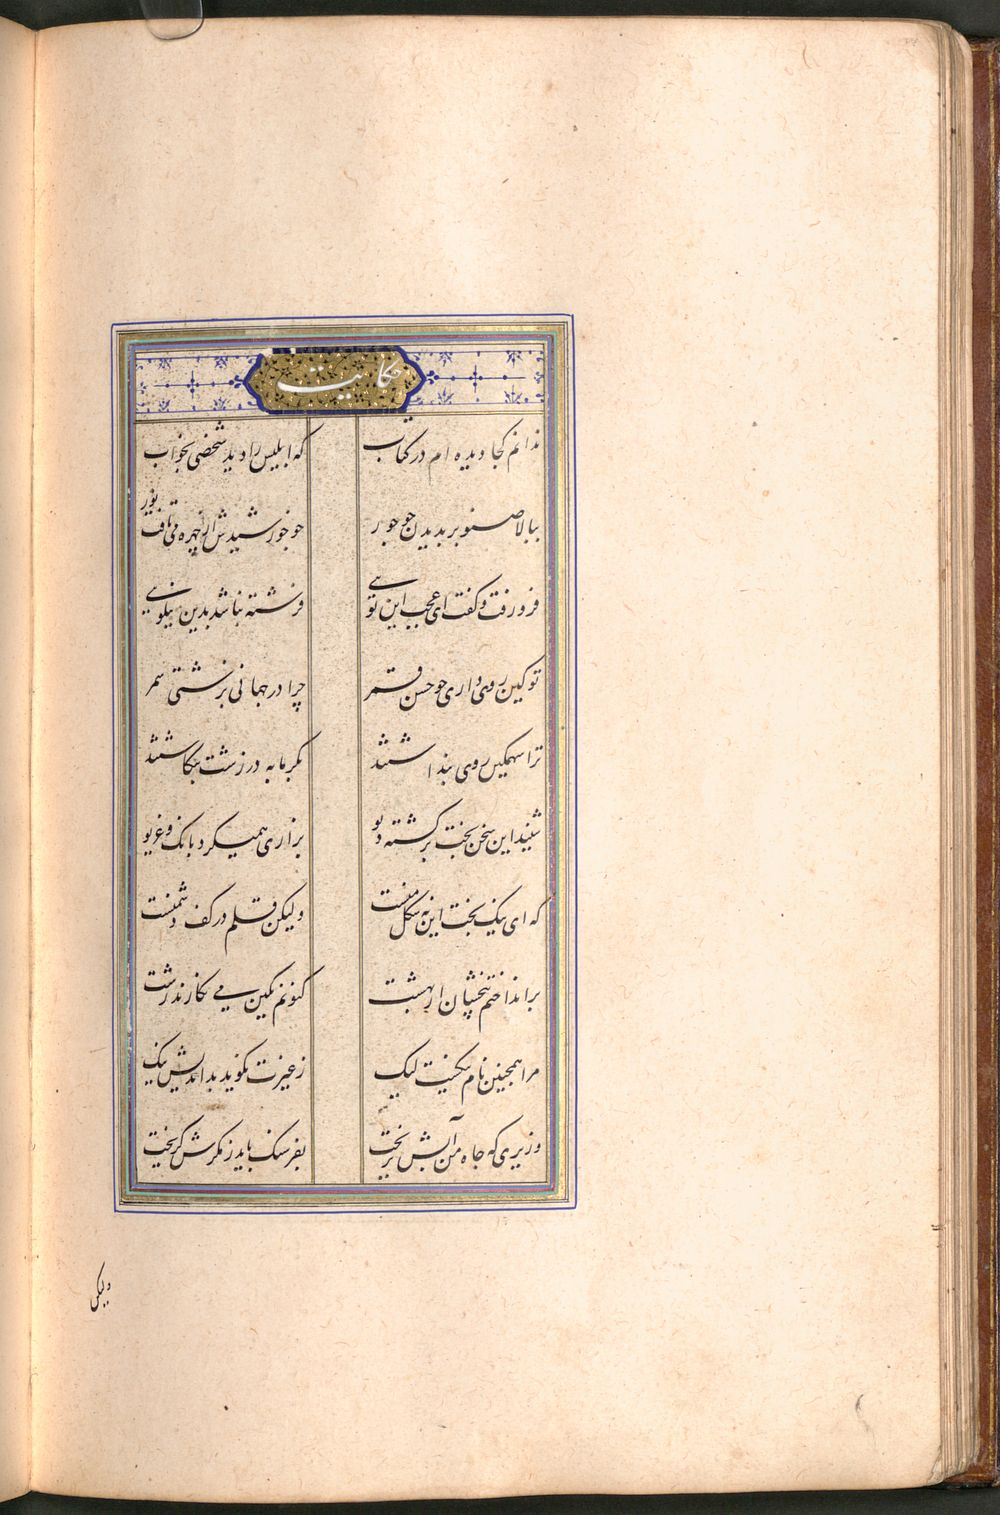 حکایت
ندانم کجا دیده ام در کتاب که ابلیس را دید شخصی بخواب
ببالا صنوبر بدیدن چو حور چو خورشیدش از چهره می تافت نور
فرو رفت و گفت ای عجب این تویی فرشته نباشد بدین نیکویی
تو کین روی داری چو حسن قمر چرا در جهانی بزشتی سمر
ترا سهمکین روی پنداشتند بکرمابه در زشت بنکاشتند
شنید این سخن بخت برکشته دیو بزاری همیکرد بانک و غریو
که ای نیک بخت این نه شکل منست ولیکن قلم در کف دشمنست
برانداختم بیخشان از بهشت کنونم بکین می نکارند زشت
مرا همچنین نام نیکست لیک ز غیرت نکوید بداندیش نیک
وزیری که جاه من آبش بریخت بفرسنک باید ز مکرش کریخت
ولیکن